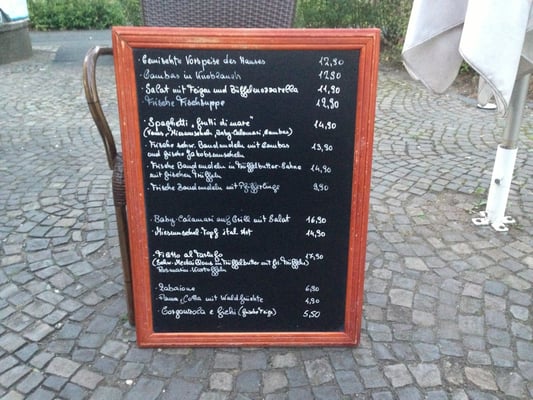 · Gemischte Vorspeise des Hauses 12,90
· Gambas in Knoblauch 12,90
· Salat mit Feigen und Büffelmozzarella 11,90
· Frische Fischsuppe 12,90
· Spaghetti „frutti di mare" 14,90
Miesmuscheln, Baby-Calamari, Gambas)
· Frische schw. Bandnudeln mit Gambas 13,90
und frische Jakobsmuscheln
· Frische Bandnudeln in Trüffelbutter-Sahne 14,90
mit frischen Trüffeln
· Frische Bandnudeln mit Pfifferlinge 9,90
· Baby-Calamari auf Grill mit Salat 16,90
· Miesmuschel-Topf ital. Art 14,90
· Filetto al Tartufo 17,90
in Trüffelbutter mit fri. Trüffeln)
Rosmarin-Kartoffeln
· Zabaione 6,90
· Panna Cotta mit Waldfrüchte 4,90
· Gorgonzola e Fichi (frische Feigen) 5,50